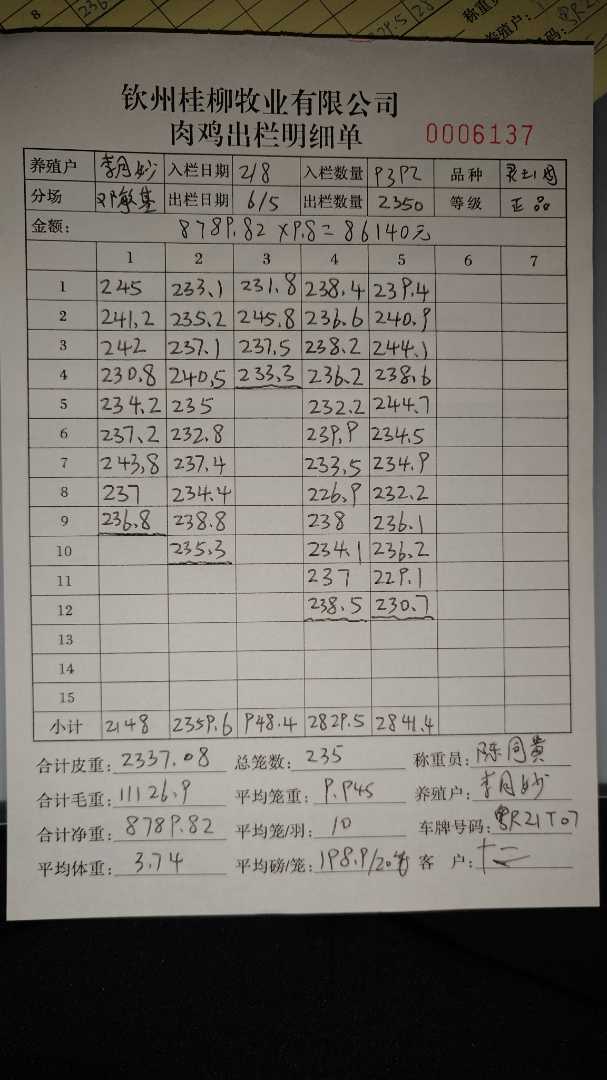 钦州桂柳牧业有限公司
肉鸡出栏明细单 0006137
养殖户 李月妙 入栏日期 2/8 入栏数量 9392 品种
分场 邓敏基 出栏日期 6/5 出栏数量 2350 等级 正品
金额: 8789.82×9.8=86140元
1 2 3 4 5 6 7
1 245 233.1 231.8 238.4 239.4
2 241.2 235.2 245.8 236.6 240.9
3 242 237.1 237.5 238.2 244.1
4 230.8 240.5 233.3 236.2 238.6
5 234.2 235 232.2 244.7
6 237.2 232.8 239.9 234.5
7 243.8 237.4 233.5 234.9
8 237 234.4 226.9 232.2
9 236.8 238.8 238 236.1
10 235.3 234.1 236.2
11 237 229.1
12 238.5 230.7
13
14
15
小计 2148 2359.6 948.4 2829.5 2841.4
合计皮重: 2337.08 总笼数: 235 称重员: 陈同黄
合计毛重: 11126.9 平均笼重: 9.945 养殖户: 李月妙
合计净重: 8789.82 平均笼/羽: 10 车牌号码: 粤R21T07
平均体重: 3.74 平均磅/笼: 198.9/20笔 客 户: